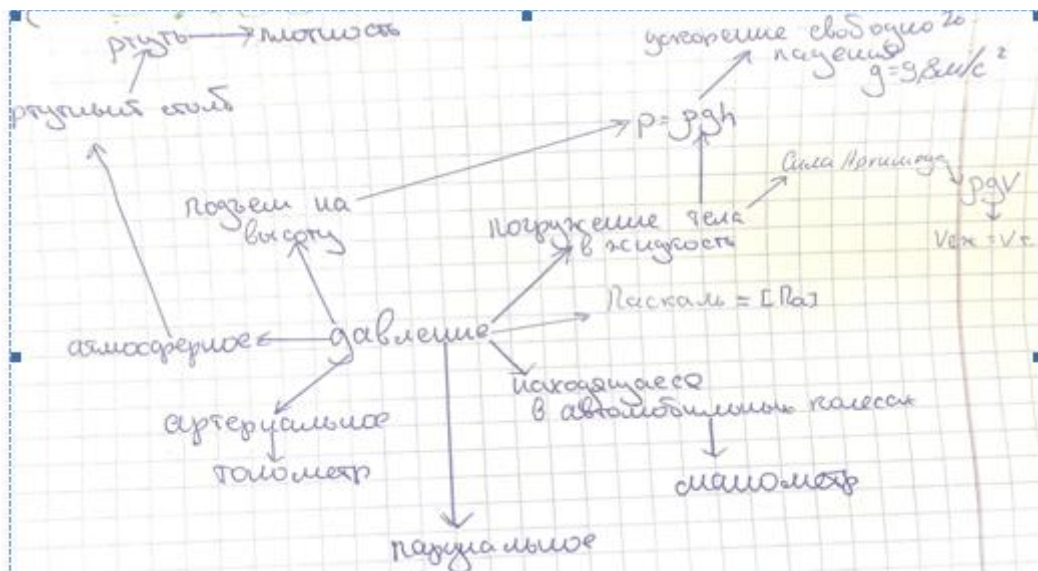 ртуть → плотность
ускорение свободного
падения
g=9,8м/с²
ртутный столб
p=ρgh
Сила Архимеда
ρgV
подъем на
высоту
погружение тела
в жидкость
Vвж=Vт
Паскаль=[Па]
атмосферное
давление
находящееся
в автомобильных колесах
артериальное
тонометр
манометр
парциальное